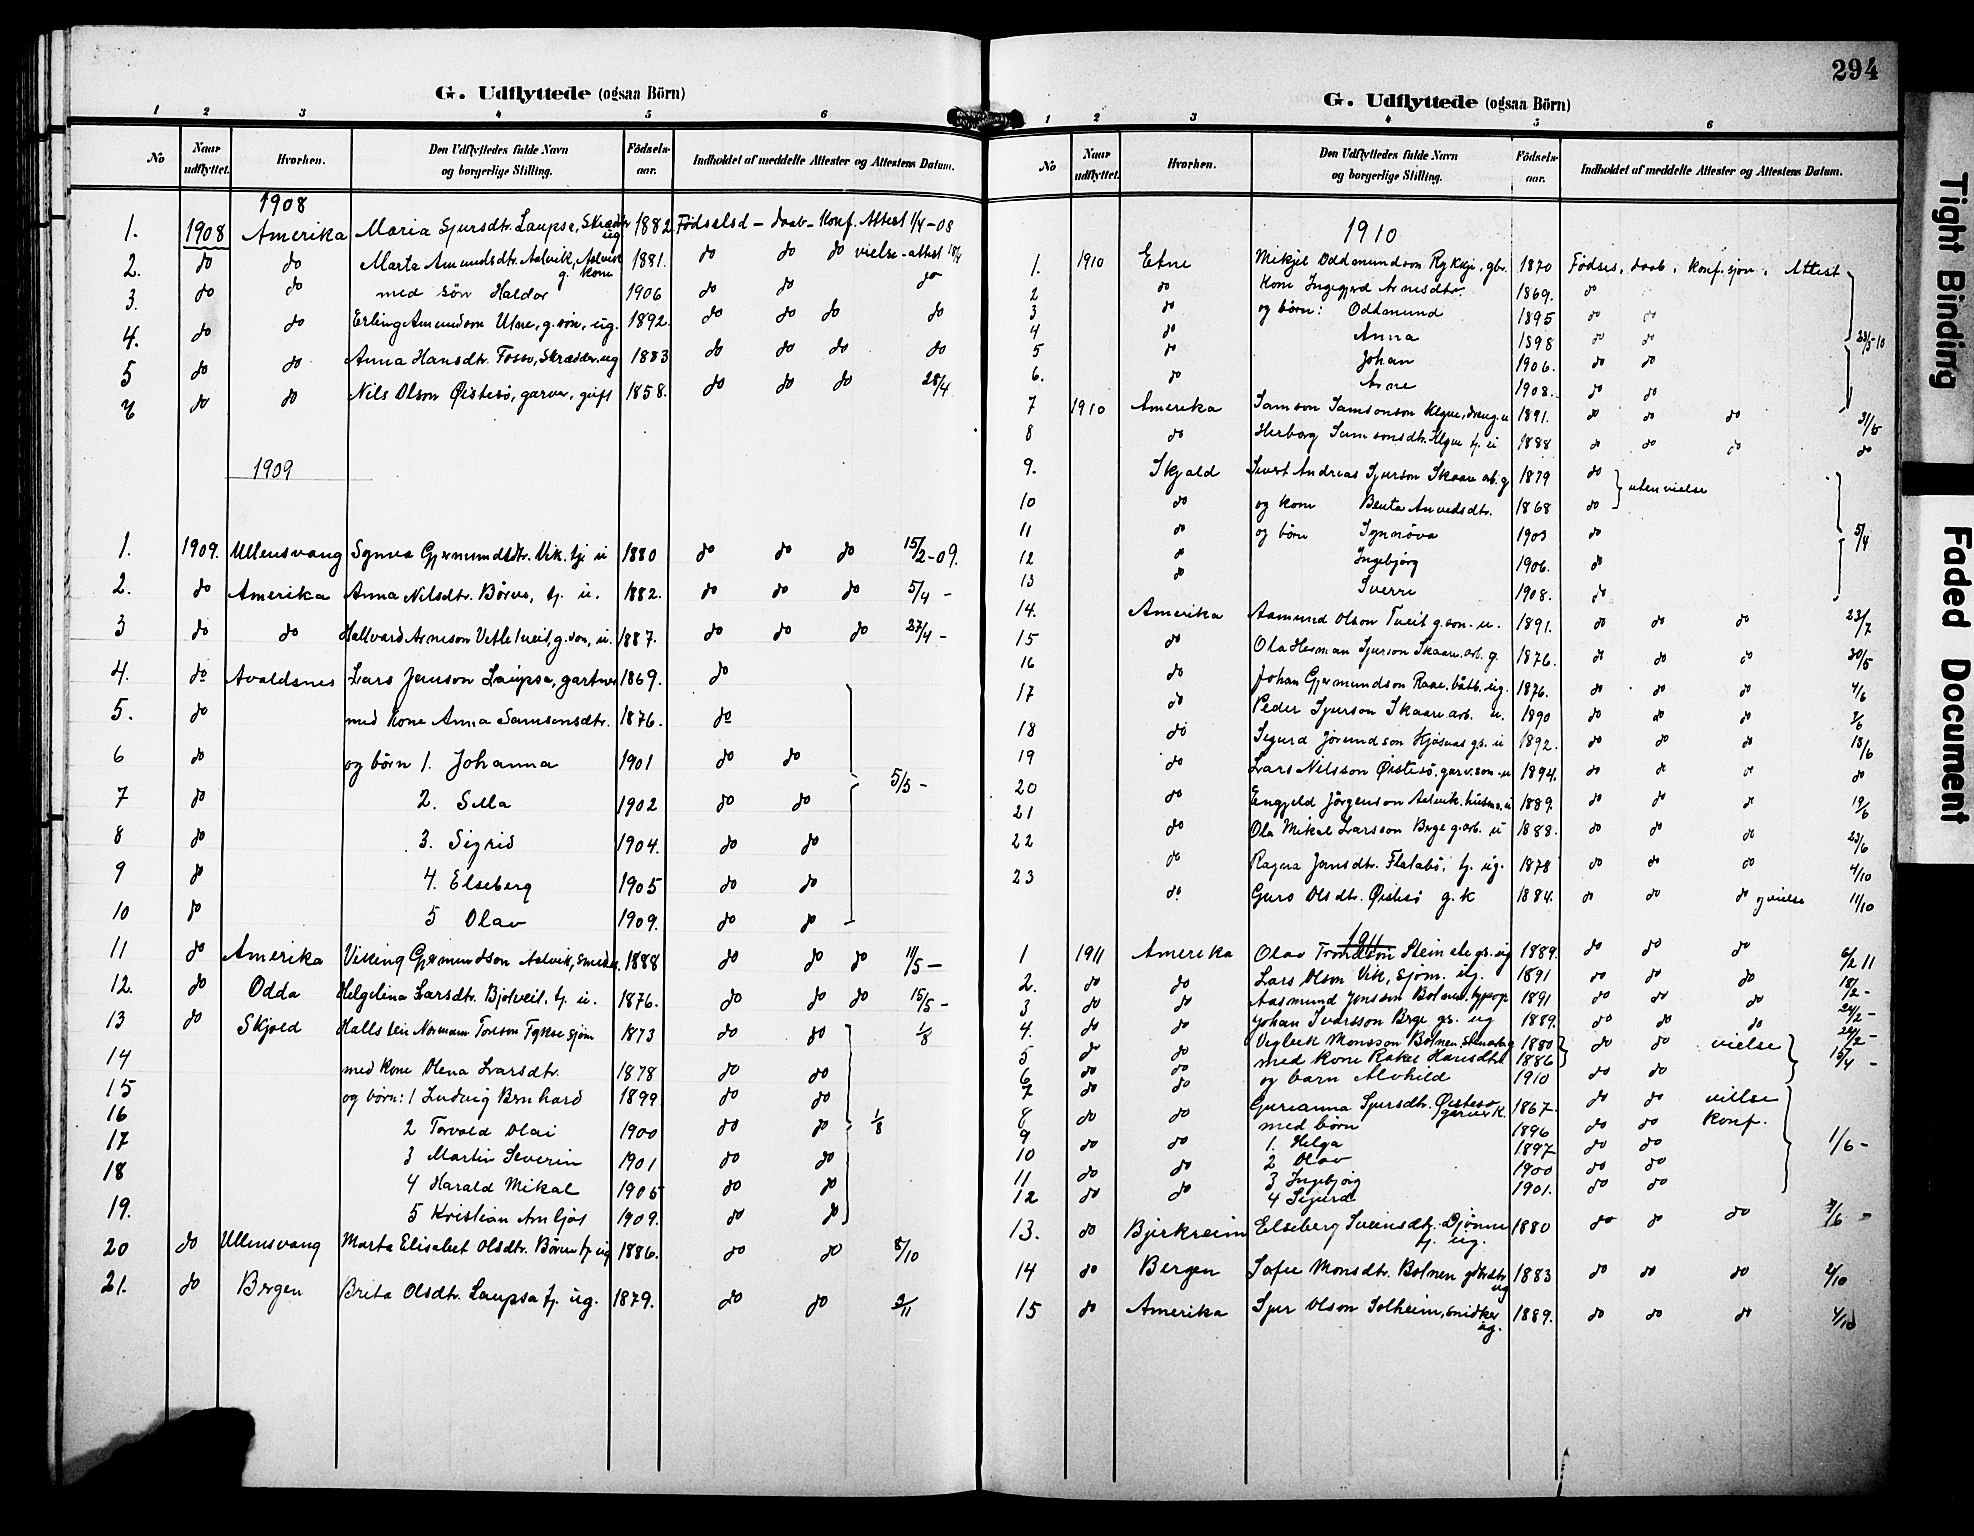 G. Udflyttede (ogsaa Börn)
1 2 3 4 5 6
No Naar udflyttet. Hvorhen. Den Udflyttedes fulde Navn og borgerlige Stilling. Födsels-aar. Indholdet af meddelte Attester og Attestens Datum.
1908
1. 1908 Amerika Maria Sjursdtr. Laupsa, ug 1882 Fødselsd - daab - Konf. Attest 1/4-08
2. do do Marta Amundsdtr. Aalvik, Aalvik g. kone 1881. do do do vielse-attest 18/4
3. do do med søn Haldor 1906 do do do
4. do do Erling Amundson Utne, g. søn, ug. 1892. do do do do
5 do do Anna Hansdtr. Fosse, Skrædder. ug 1883 do do do do
6 do do Nils Olson Øistesö, garver, gift 1858. do do do 28/4
1909
1. 1909. Ullensvang Synva Gjermundsdtr. Vik. tj. u 1880 do do do 15/2-09.
2. do Amerika Anna Nilsdtr. Børve, tj. u. 1882. do do do 5/4 -
3 do do Hallvard Arneson Vetletveit, g. søn, u. 1887. do do do 27/4 -
4. do Avaldsnes Lars Janson Laupsa, gartner 1869. do
5. do med kone Anna Samsonsdtr. 1876. do
6 do og börn 1. Johanna 1901 do do
5/5 -
7 do 2. Silla 1902 do do
8 do 3. Sigrid 1904. do do
9 do 4. Elseberg 1905 do do
10 do 5 Olav 1909. do do
11 do Amerika Viking Gjermundson Aalvik, 1888 do do do 11/5 -
12. do Odda Helgelena Larsdtr. Bjölveit, tj. u. 1876. do do do 15/5 -
13 do Skjold Norman Toreson sjøm 1873 do do 1/8
14 med kone Olena Larsdtr. 1878 do do
15 og börn: 1 Ludvig Bernhard 1899 do do
16 2 Torvald Olai 1900 do do 1/8
17 3 Martin Severin 1901 do do
18 4 Harald Mikal 1905 do do
19. 5 Kristian 1909. do do
20 do Ullensvang Marta Elisabet Olsdtr. Børve tj. ug 1886. do do 8/10
21. do Bergen Brita Olsdtr. Laupsa tj. ug. 1879. do do 2/11
294
G. Udflyttede (ogsaa Börn)
1 2 3 4 5 6
No Naar udflyttet. Hvorhen. Den Udflyttedes fulde Navn og borgerlige Stilling. Födsels-aar. Indholdet af meddelte Attester og Attestens Datum.
1910
1. 1910 Etne Mikjel Oddmundson Rykkje, gbr. 1870 Födsels, daab, konf. Attest
2 do Kone Ingegjerd Arnesdtr. 1869. do
3 do og börn: Oddmund 1895 do do
4 do Anna 1898 do do
23/5-10
5 do Johan 1906. do do
6. do Arne 1908. do do
7 1910 Amerika Samson Samsonson Klyve, dreng. u 1891. do do do 31/5
8 do Herborg Samsonsdtr. Klyve tj. u 1888 do do do do
9. Skjold Sivert Andreas Sjurson Skaare arb. g 1879 do
uten vielse
10 do og kone Benta 1868 do
11 do og börn Synnöva 1903 do
5/4
12 do Ingebjörg 1906. do
13 do Sverre 1908. do
14. Amerika Aamund Olson Tveit g. son. u. 1891. do do do 23/7
15 do Ola Herman Sjurson Skaare arb. g. 1876. do do do 30/5
16 do Johan Gjermundson Raae, ug. 1876. do do do 4/6
17 do Peder Sjurson Skaare arb. u. 1890 do do do 2/6
18 do Sigurd gs. u 1892. do do do 18/6
19 do Lars Nilsson Øistesö, garv. son. u 1894. do do do do
20 do Engjeld Jörgenson Aalvik. u 1889. do do do 19/6
21 do Ola Mikal Larsson Berge g. arb. u 1888. do do do 23/6
22 do Ragna Jansdtr. Flatabö, tj. ug. 1878 do do do 4/10
23 do Guro Olsdtr. Øistesö g. k 1884. do do do g vielse 11/10
1911
1 1911 Amerika Olav Trondson Steinstø gs. ug 1889. do do do 6/2 11
2. do do Lars Olson Vik, sjöm. ug. 1891 do do do 18/2 -
3 do do Aasmund Jonsson Bolmen. 1891 do do do 24/2 -
4. do do Johan Ivarsson Berge gs. ug 1889. do do do 28/2 -
5 do do Monsson Bolmen 1880 do do vielse 15/4 -
6 do do med kone Rakel Hansdtr 1886
7 do do og barn Alvhild 1910 do do
8 do do Gurianna Sjursdtr. Øistesö garver k. 1867. do do vielse
med börn
9 do do 1. Helga 1896 do do konf.
10 do do 2 Olav 1897 do do 1/6 -
11 do do 3 Ingebjörg 1900 do do
12 do do 4 Sigurd 1901. do do
13. do Bjerkreim Elseberg Sveinsdtr. Djönne tj. ug. 1880 do do do 7/6 -
14 do Bergen Sofie Monsdtr. Bolmen ug 1883 do do do 2/10
15 do Amerika Sjur Olson Solheim, snidker ug. 1889. do do do 4/10
Tight Binding
Faded Document